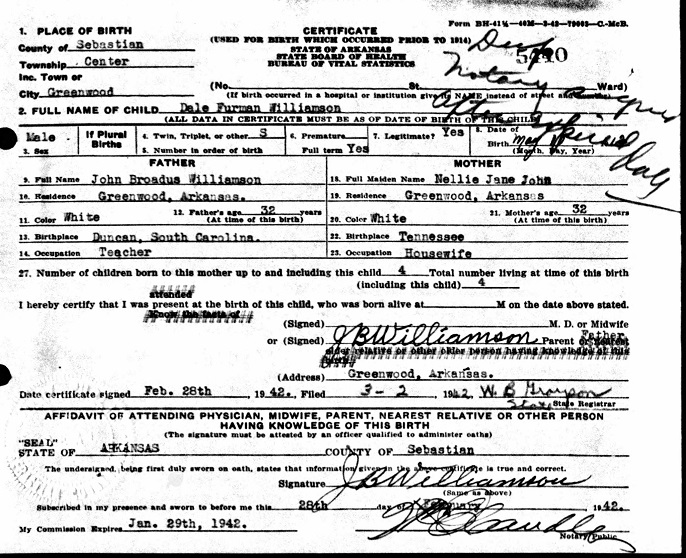 Form BH-41½—40M—3-42—79003—C-McB.
1. PLACE OF BIRTH
County of Sebastian
Township Center
Inc. Town or
City Greenwood
CERTIFICATE
(USED FOR BIRTH WHICH OCCURRED PRIOR TO 1914)
STATE OF ARKANSAS
STATE BOARD OF HEALTH
BUREAU OF VITAL STATISTICS
(No. St. Ward)
(If birth occurred in a hospital or institution give its NAME instead of street and
Notary
after
2. FULL NAME OF CHILD Dale Furman Williamson
(ALL DATA IN CERTIFICATE MUST BE AS OF DATE OF BIRTH OF THIS CHILD)
Male
3. Sex
If Plural Births
4. Twin, Triplet, or other S
5. Number in order of birth
6. Premature
Full term Yes
7. Legitimate? Yes
8. Date of
Birth May
(Month, Day, Year)
FATHER MOTHER
9. Full Name John Broadus Williamson 18. Full Maiden Name Nellie Jane John
10. Residence Greenwood, Arkansas. 19. Residence Greenwood, Arkansas
11. Color White 12. Father's age 32 years (At time of this birth) 20. Color White 21. Mother's age 32 years (At time of this birth)
13. Birthplace Duncan, South Carolina. 22. Birthplace Tennessee
14. Occupation Teacher 23. Occupation Housewife
27. Number of children born to this mother up to and including this child 4 Total number living at time of this birth
(including this child) 4
attended
I hereby certify that I was present at the birth of this child, who was born alive at M on the date above stated.
Know the facts of
(Signed) M. D. or Midwife
or (Signed) J B Williamson Parent or nearest Father
older relative or other older person having knowledge of this
(Address) Greenwood, Arkansas.
Date certificate signed Feb. 28th 1942. Filed 3-2 1942, W. B Grayson
State State Registrar
AFFIDAVIT OF ATTENDING PHYSICIAN, MIDWIFE, PARENT, NEAREST RELATIVE OR OTHER PERSON
HAVING KNOWLEDGE OF THIS BIRTH
(The signature must be attested by an officer qualified to administer oaths)
"SEAL"
STATE OF ARKANSAS COUNTY OF Sebastian
The undersigned, being first duly sworn on oath, states that information given in the above certificate is true and correct.
Signature J B Williamson
(Same as above)
Subscribed in my presence and sworn to before me this 28th day of February 1942.
My Commission Expires Jan. 29th, 1942.
Notary Public